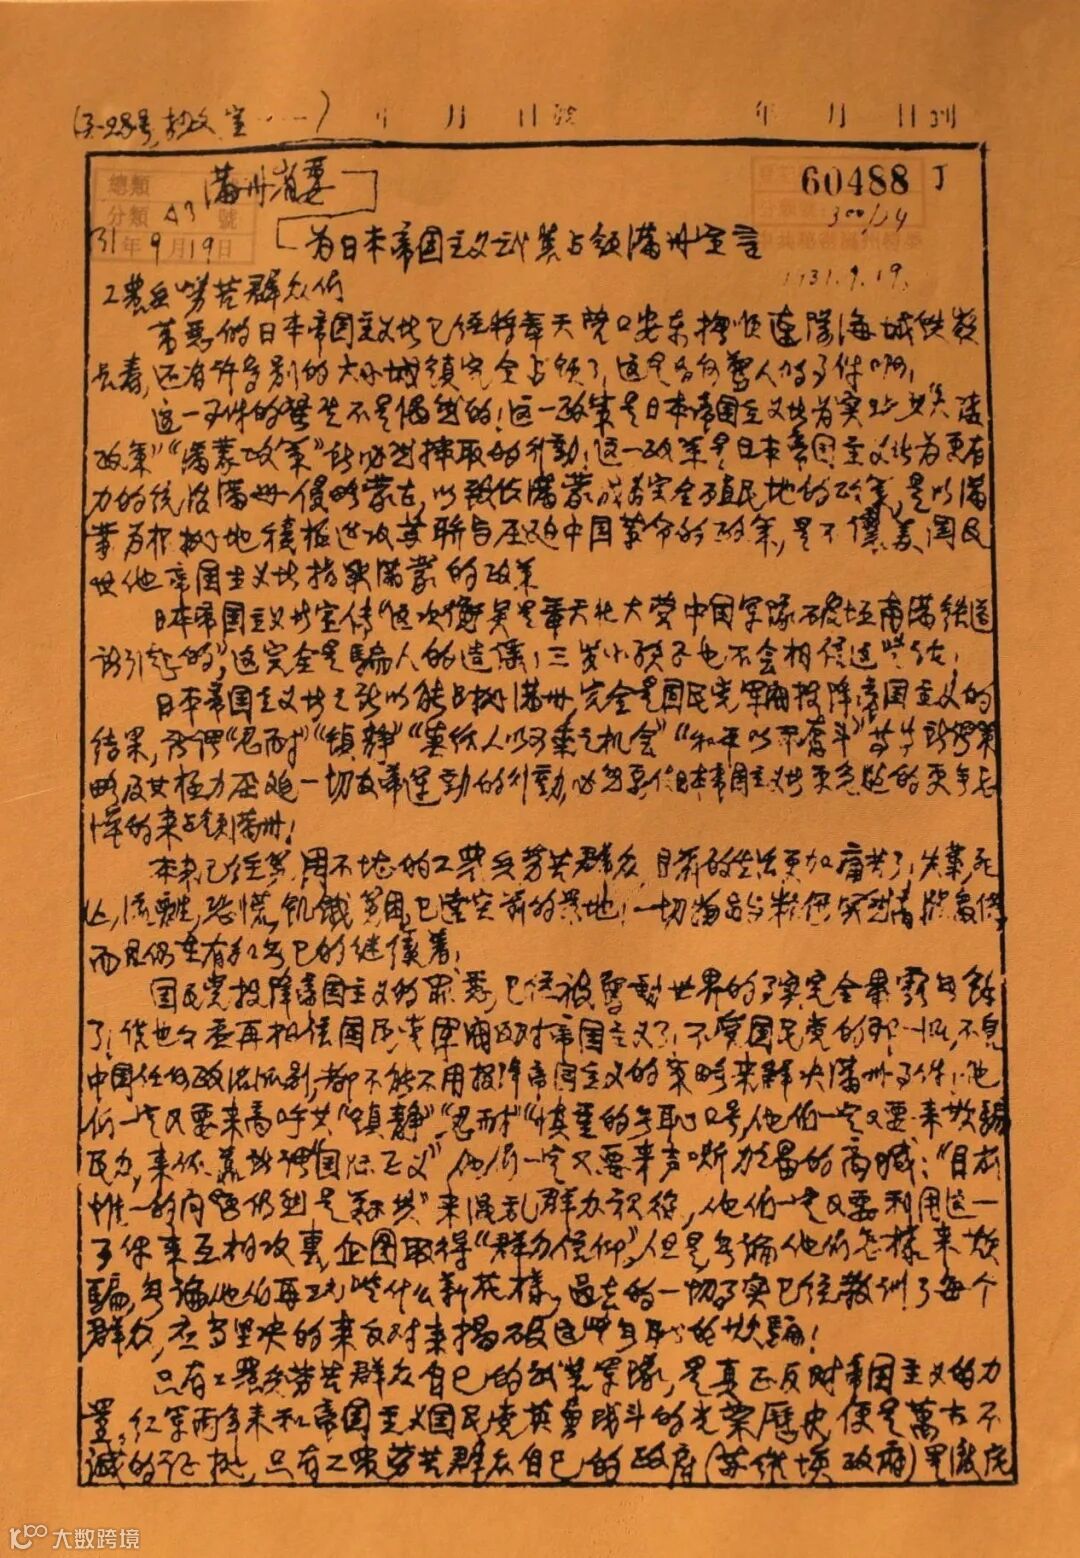 年 月 日
年 月 日到
總類
分類 A3 號
31年9月19日
滿州省委
60488 丁
300/14
1931.9.19.
为日本帝国主义武装占领满州宣言
工农兵劳苦群众们
万恶的日本帝国主义者已经将奉天营口安东抚顺辽阳海城铁岭
长春,还有许多别的大小城镇完全占领了,这是多么惊人的事件啊!
这一事件的发生不是偶然的!这一政策是日本帝国主义者为实现"大陆
政策""满蒙政策"所必然采取的行动!这一政策是日本帝国主义者为更有
力的统治满州侵略蒙古,以致使满蒙成为完全殖民地的政策,是以满
蒙为根据地积极进攻苏联与压迫中国革命的政策,是不让美国及
其他帝国主义者指染满蒙的政策
日本帝国主义者宣传"这次冲突是奉天北大营中国军队破坏南满铁道
所引起的",这完全是骗人的造谣,三岁小孩子也不会相信这些话!
日本帝国主义者之所以能占据满州,完全是国民党军阀投降帝国主义的
结果,所谓"忍耐""镇静""莫给人以可乘之机会""和平以不奋斗"等等
略及其极力压迫一切反帝运动的行动,必然要使日本帝国主义者更急进的更无忌
惮的来占领满州!
本来已经穷困不堪的工农兵劳苦群众,目前的生活更加痛苦了,失业死
亡,流离,恐慌,饥饿穷困,已达空前的景地!一切物品与粮价突然
而且仍在有加无已的继续着!
国民党投降帝国主义的罪恶,已经被惊动世界的事实完全暴露无余
了!谁也不会再相信国民党军阀反对帝国主义了!不管国民党的那一派,不管
中国任何政治派别,都不能不用投降帝国主义的策略来解决满州事件!他
们一定又要来高呼其"镇静""忍耐""慎重"的无耻口号,他们一定又要来欺骗
民众,来依靠所谓"国际正义"他们一定又要来声嘶力竭的高喊:"目前
惟一的问题仍然是剿共"来混乱群众视线,他们一定又要利用这一
事件来互相攻讦,企图取得"群众信仰",但是无论他们怎样来欺
骗,无论他们再玩些什么新花样,过去的一切事实已经教训了每个
群众,应当坚决的来反对来揭破这些无耻的欺骗!
只有工农兵劳苦群众自己的武装军队,是真正反对帝国主义的力
量,红军两年来和帝国主义国民党英勇战斗的光荣历史,便是万古不
灭的证据,只有工农劳苦群众自己的政府(苏维埃政府)是彻底
大数跨境